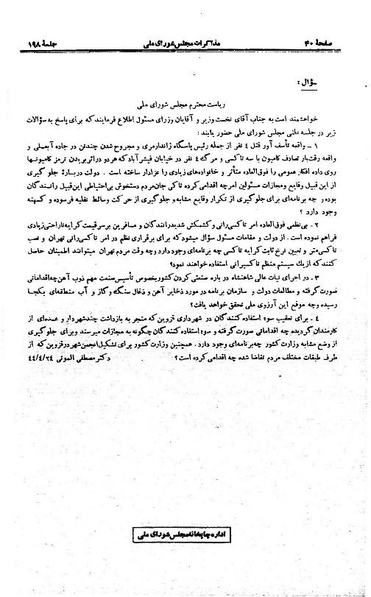 صفحهٔ ۴۰ مذاکرات مجلس شورای ملی جلسهٔ ۱۹۸
سؤال :
ریاست محترم مجلس شورای ملی
خواهشمند است به جناب آقای نخست وزیر و آقایان وزرای مسئول اطلاع فرمایند که برای پاسخ به سؤالات
زیر در جلسه علنی مجلس شورای ملی حضور یابند :
۱ ـ واقعه تأسف آور قتل ۴ نفر از جمله رئیس پاسگاه ژاندارمری و مجروح شدن چندتن در جاده آبعلی و
واقعه رقت‌بار تصادف کامیون با سه تاکسی و مرگ ۴ نفر در خیابان فیشرآباد که هر دو در اثر بریدن ترمز کامیونها
روی داده افکار عمومی را فوق‌العاده متأثر و خانواده‌های زیادی را عزادار ساخته است . دولت دربارهٔ جلوگیری
از این قبیل وقایع و مجازات مسئولین امر چه اقدامی کرده تا کی جان مردم دستخوش بی‌احتیاطی این قبیل رانندگان
بوده و چه برنامه‌ای برای جلوگیری از تکرار وقایع مشابه و جلوگیری از حرکت وسائط نقلیه فرسوده و کهنه
وجود دارد ؟
۲ ـ بی‌نظمی فوق‌العاده امر تاکسی‌رانی و کشمکش شدید رانندگان و مسافرین بر سر قیمت کرایه ناراحتی زیادی
فراهم نموده است . از دولت و مقامات مسئول سؤال میشود که برای برقراری نظم در امر تاکسی‌رانی تهران و نصب
تاکسی‌متر و تعیین نرخ ثابت کرایه تاکسی چه برنامه‌ای وجود دارد و چه وقت مردم تهران میتوانند اطمینان حاصل
کنند که از یك سیستم منظم تاکسیرانی استفاده خواهند نمود ؟
۳ ـ در اجرای نیات عالی شاهنشاه در باره صنعتی کردن کشور بخصوص تأسیس صنعت مهم ذوب آهن چه اقداماتی
صورت گرفته و مطالعات دولت و سازمان برنامه در مورد ذخایر آهن و ذغال سنگ و گاز و آب منطقه‌ای بکجا
رسیده و چه موقع این آرزوی ملی تحقق خواهد یافت ؟
۴ ـ برای تعقیب سوء استفاده کنندگان در شهرداری قزوین که منجر به بازداشت چند شهردار و عده‌ای از
کارمندان گردیده چه اقداماتی صورت گرفته و سوء استفاده کنندگان چگونه به مجازات میرسند و برای جلوگیری
از وضع مشابه وزارت کشور چه برنامه‌ای وجود دارد . همچنین وزارت کشور برای تشکیل انجمن شهر در قزوین که از
طرف طبقات مختلف مردم تقاضا شده چه اقدامی کرده است ؟ دکتر مصطفی الموتی ۴۴/۴/۲۴
اداره چاپخانه مجلس شورای ملی